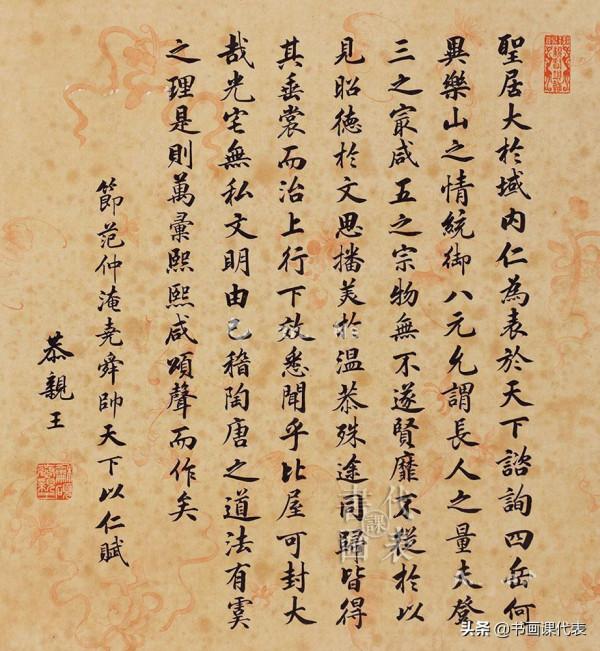 聖居大於域內仁為表於天下諮詢四岳何
異樂山之情統御八元允謂長人之量夫登
三之冣咸五之宗物無不遂賢靡不從於以
見昭德於文思播美於溫恭殊途同歸皆得
其垂裳而治上行下效悉聞乎比屋可封大
哉光宅無私文明由己稽陶唐之道法有虞
之理是則萬彙熙熙咸頌聲而作矣
節范仲淹堯舜帥天下以仁賦
恭親王
头条 @书画课代表